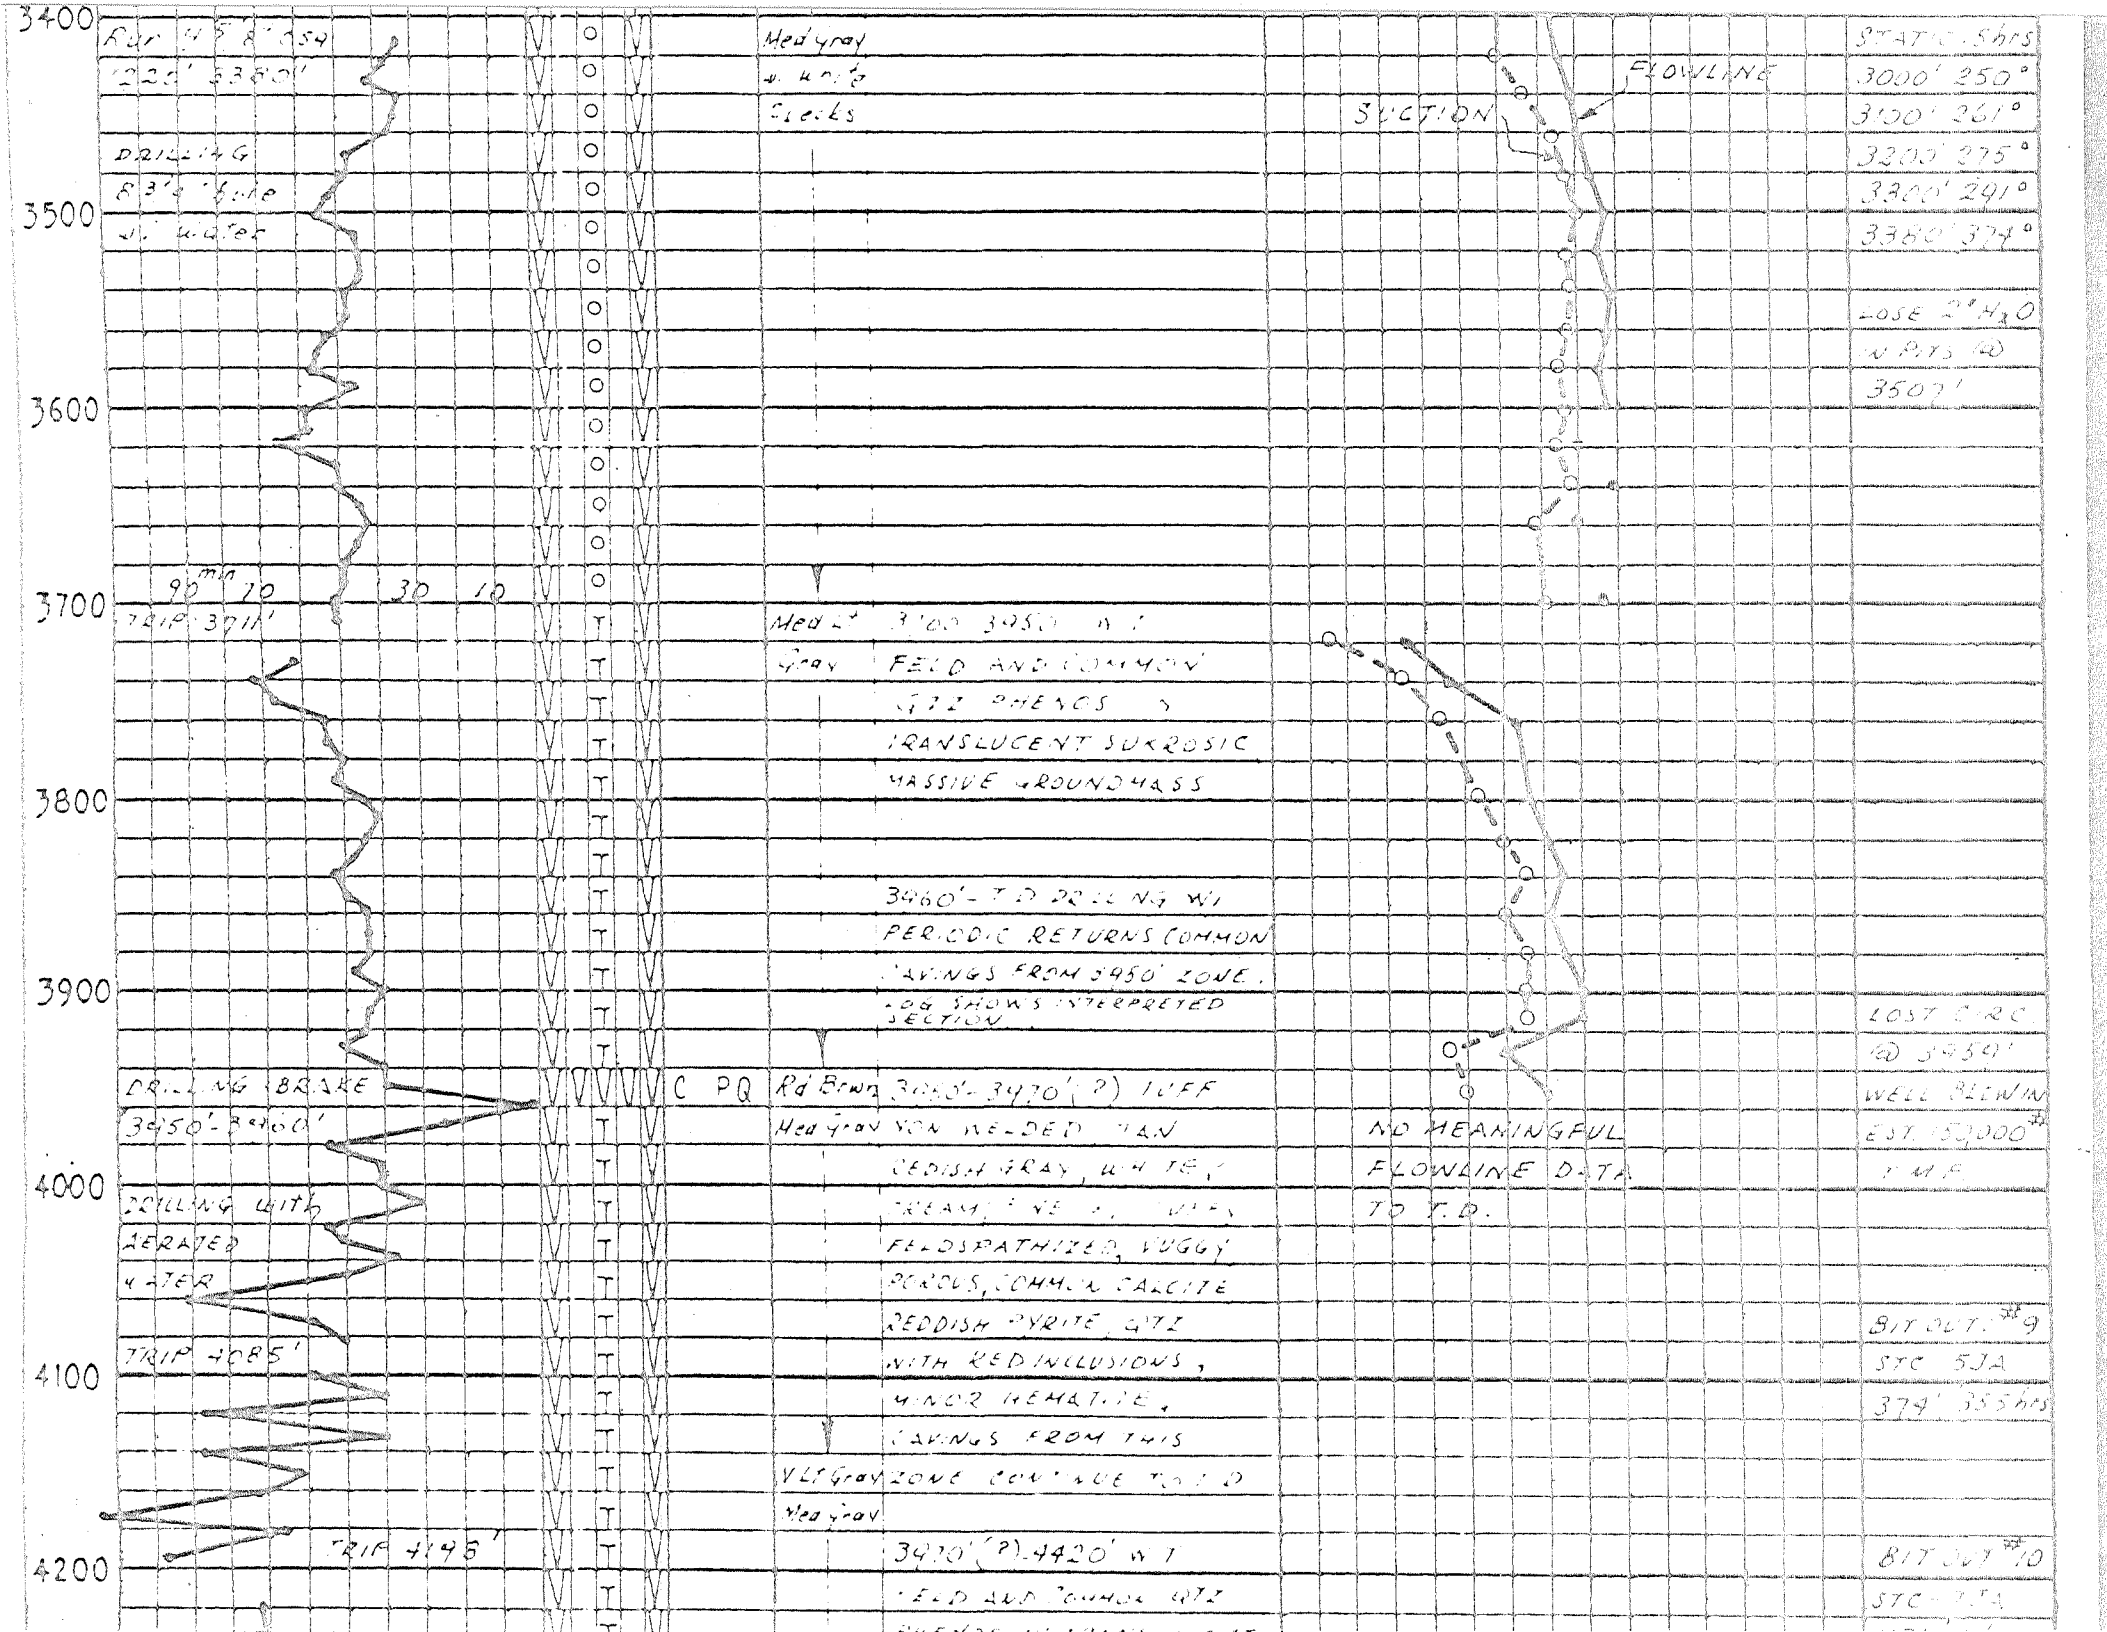 3400
3500
3600
3700
3800
3900
4000
4100
4200
DRILLING
water
90 min 70 30 10
TRIP 3711'
DRILLING BRAKE
3950'-3960'
DRILLING with
AERATED
WATER
TRIP 4085'
TRIP 4195'
C PQ
Med gray
Med Lt
Gray
Rd Brwn
Med gray
V Lt Gray
Med gray
FELD AND COMMON
QTZ PHENOS
TRANSLUCENT SUKROSIC
MASSIVE GROUNDMASS
3960'-TD DRILLING W/
PERIODIC RETURNS COMMON
CAVINGS FROM 3950' ZONE.
LOG SHOWS INTERPRETED
SECTION
3950'-3970'(?) TUFF
NON WELDED, TAN
FELDSPATHIZED, VUGGY
POROUS, COMMON CALCITE
REDDISH PYRITE, QTZ
WITH RED INCLUSIONS,
MINOR HEMATITE.
CAVINGS FROM THIS
ZONE CONTINUE TO TD
3970'(?)-4420' WT
FELD AND COMMON QTZ
SUCTION
FLOWLINE
NO MEANINGFUL
FLOWLINE DATA
TO T.D.
STATIC 5hrs
3000' 250°
3100' 261°
3200' 275°
3300' 291°
3380' 374°
LOSE 2" H2O
IN PITS @
3507'
LOST CIRC
@ 3959'
WELL BLEW IN
EST. 150,000#
BIT OUT: #9
STC 5JA
374' 35.5hrs
BIT OUT #10
STC